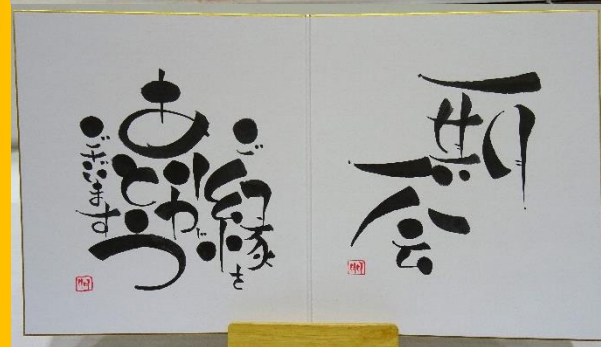 一期一会
ご縁を
ありがとう
ございます